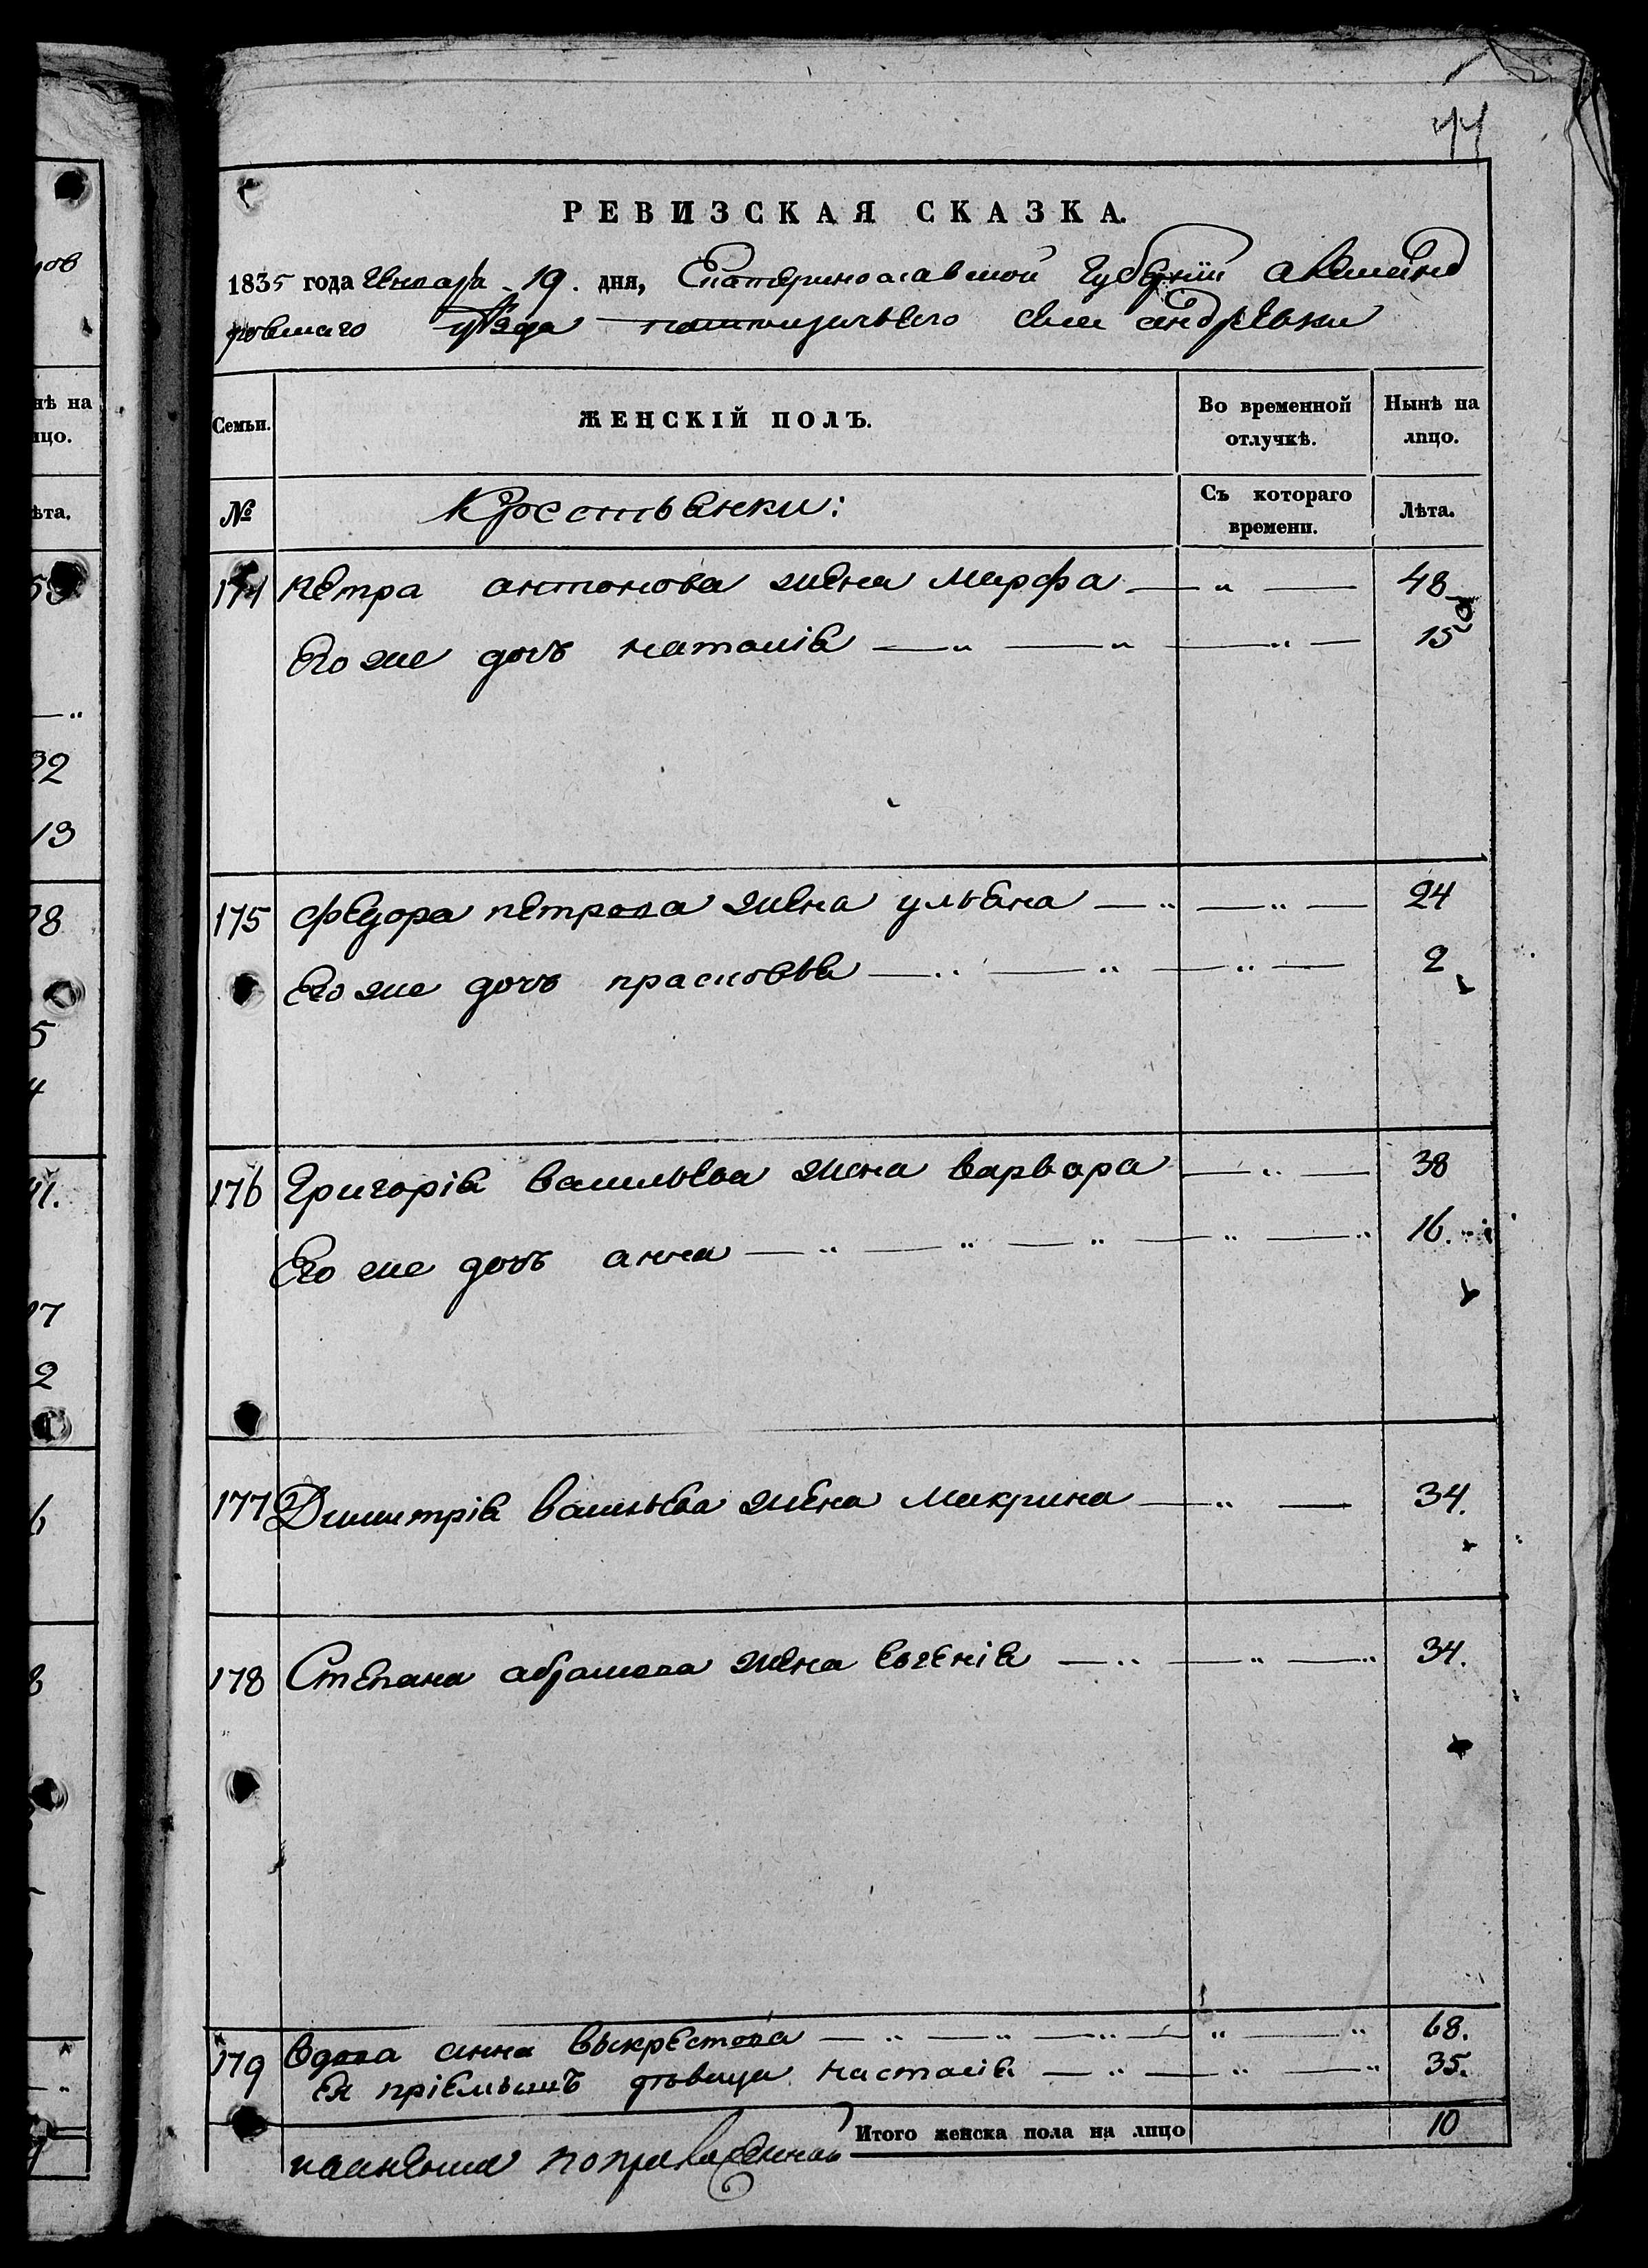 44
РЕВИЗСКАЯ СКАЗКА.
1835 года Генваря 19. дня, Екатеринославской Губернии Александ
ровскаго уѣзда села андреевки
Семьи.
ЖЕНСКІЙ ПОЛЪ.
Во временной отлучкѣ.
Нынѣ на лицо.
№
Крестьянки:
Съ котораго времени.
Лѣта.
174 петра антонова жена Марфа — „ — 48
Его же дочь наталія — „ — „ — „ — 15
175 федора петрова жена ульяна — „ — „ — 24
Его же дочь прасковья — „ — „ — „ — 2
176 Григорія васильева жена варвара — „ — 38
Его же дочь анна — „ — „ — „ — „ — „ 16.
177 Димитрія васильева жена Макрина — „ — 34.
178 Степана абрамова жена евгенія — „ — „ — „ 34.
179 вдова анна выкрестова — „ — „ — „ — „ — „ 68.
Ея пріемышъ дѣвица наталія — „ — „ — „ 35.
Итого женска пола на лицо 10